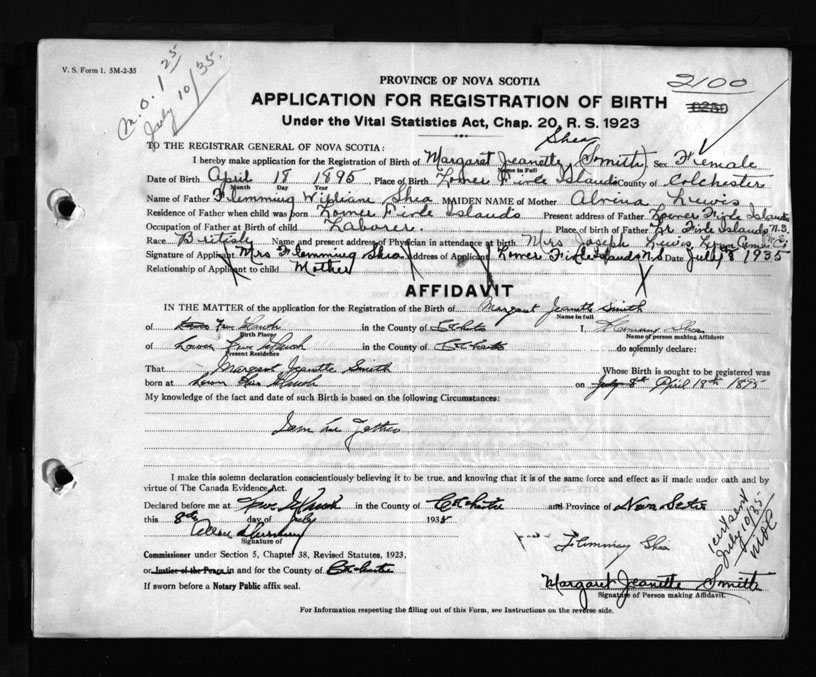 V. S. Form 1. 5M-2-35
M.O. 1 25
July 10/35.
PROVINCE OF NOVA SCOTIA
2100
APPLICATION FOR REGISTRATION OF BIRTH
Under the Vital Statistics Act, Chap. 20, R. S. 1923
TO THE REGISTRAR GENERAL OF NOVA SCOTIA:
Shea
I hereby make application for the Registration of Birth of Margaret Jeanette (Smith) Sex Female
Name in Full
Date of Birth April 18 1895 Place of Birth Lower Five Islands County of Colchester
Month Day Year
Name of Father Flemming William Shea MAIDEN NAME of Mother Alvenia Lewis
Residence of Father when child was born Lower Five Islands Present address of Father Lower Five Islands
Occupation of Father at Birth of child Laborer. Place of birth of Father Lr. Five Islands N.S.
Race British Name and present address of Physician in attendance at birth Mrs Joseph Lewis
Signature of Applicant Mrs Flemming Shea Address of Applicant Lower Five Islands N.S Date July 8 1935
Relationship of Applicant to child Mother
AFFIDAVIT
IN THE MATTER of the application for the Registration of the Birth of Margaret Jeanette Smith
Name in full
of Five Islands in the County of Colchester I, Flemming Shea
Birth Place Name of person making Affidavit
of Lower Five Islands in the County of Colchester do solemnly declare:
Present Residence
That Margaret Jeanette Smith Whose Birth is sought to be registered was
born at Lower Five Islands on July 8th April 18th 1895
My knowledge of the fact and date of such Birth is based on the following Circumstances:
I am the Father
I make this solemn declaration conscientiously believing it to be true, and knowing that it is of the same force and effect as if made under oath and by
virtue of The Canada Evidence Act.
Declared before me at Five Islands in the County of Colchester and Province of Nova Scotia
this 8th day of July 1935
Signature of
Flemming Shea
Commissioner under Section 5, Chapter 38, Revised Statutes, 1923,
or Justice of the Peace in and for the County of Colchester
Margaret Jeanette Smith
If sworn before a Notary Public affix seal.
Signature of Person making Affidavit.
For Information respecting the filling out of this Form, see Instructions on the reverse side.
July 10/35